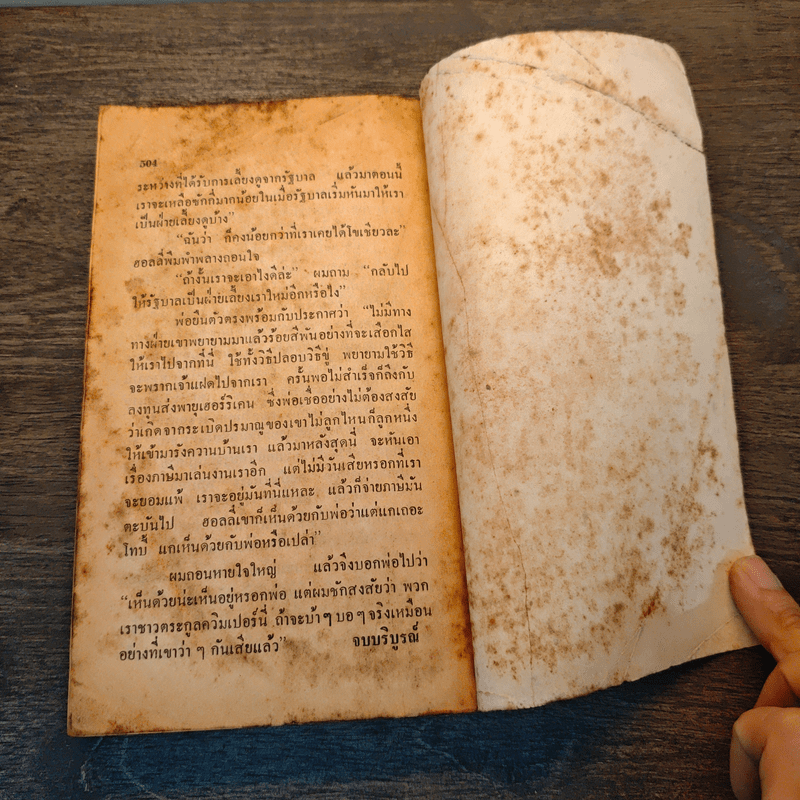 504
ระหว่างที่ได้รับการเลี้ยงดูจากรัฐบาล แล้วมาตอนนี้
เราจะเหลือซักกี่มากน้อยในเมื่อรัฐบาลเริ่มหันมาให้เรา
เป็นฝ่ายเลี้ยงดูบ้าง”
“ฉันว่า ก็คงน้อยกว่าที่เราเคยได้โขเชียวละ”
ฮอลลี่พึมพำพลางถอนใจ
“ถ้างั้นเราจะเอาไงดีล่ะ” ผมถาม “กลับไป
ให้รัฐบาลเป็นฝ่ายเลี้ยงเราใหม่อีกหรือไง”
พ่อยืนตัวตรงพร้อมกับประกาศว่า “ไม่มีทาง
ทางฝ่ายเขาพยายามมาแล้วร้อยสีพันอย่างที่จะเสือกไส
ให้เราไปจากที่นี่ ใช้ทั้งวิธีปลอบวิธีขู่ พยายามใช้วิธี
จะพรากเจ้าแฝดไปจากเรา ครั้นพอไม่สำเร็จก็ถึงกับ
ลงทุนส่งพายุเฮอร์ริเคน ซึ่งพ่อเชื่ออย่างไม่ต้องสงสัย
ว่าเกิดจากระเบิดปรมาณูของเขาไม่ลูกไหนก็ลูกหนึ่ง
ให้เข้ามารังควานบ้านเรา แล้วมาหลังสุดนี่ จะหันเอา
เรื่องภาษีมาเล่นงานเราอีก แต่ไม่มีวันเสียหรอกที่เรา
จะยอมแพ้ เราจะอยู่มันที่นี่แหละ แล้วก็จ่ายภาษีมัน
ตะบันไป ฮอลลี่เขาก็เห็นด้วยกับพ่อว่าแต่แกเถอะ
โทบี้ แกเห็นด้วยกับพ่อหรือเปล่า”
ผมถอนหายใจใหญ่ แล้วจึงบอกพ่อไปว่า
“เห็นด้วยน่ะเห็นอยู่หรอกพ่อ แต่ผมชักสงสัยว่า พวก
เราชาวตระกูลควิมเปอร์นี่ ถ้าจะบ้าๆ บอๆ จริงเหมือน
อย่างที่เขาว่า ๆ กันเสียแล้ว” จบบริบูรณ์